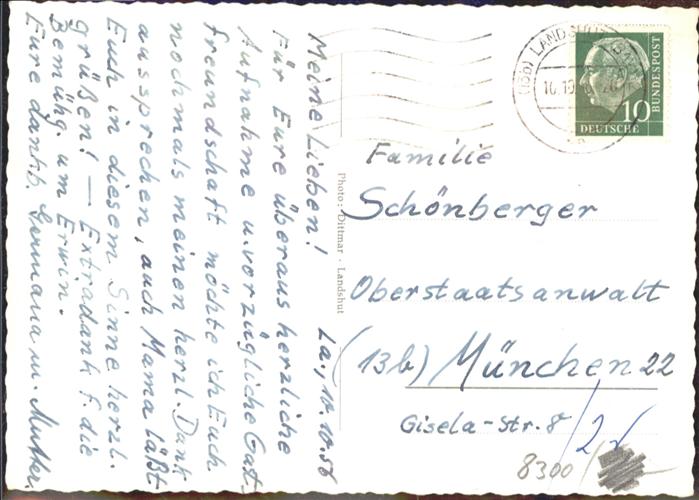 Meine Lieben! La., 10.10.56
Für Eure überaus herzliche
Aufnahme u. vorzügliche Gast-
freundschaft möchte ich Euch
nochmals meinen herzl. Dank
aussprechen, auch Mama läßt
Euch in diesem Sinne herzl.
grüßen! — Extradank f. die
Bemühg. um Erwin.
Eure dankb. Germana m. Mutter.
Photo: Dittmar · Landshut
(13b) LANDSHUT (BAY)
10.10.
10
DEUTSCHE
BUNDESPOST
Familie
Schönberger
Oberstaatsanwalt
(13b) München 22
Gisela-Str. 8
8300